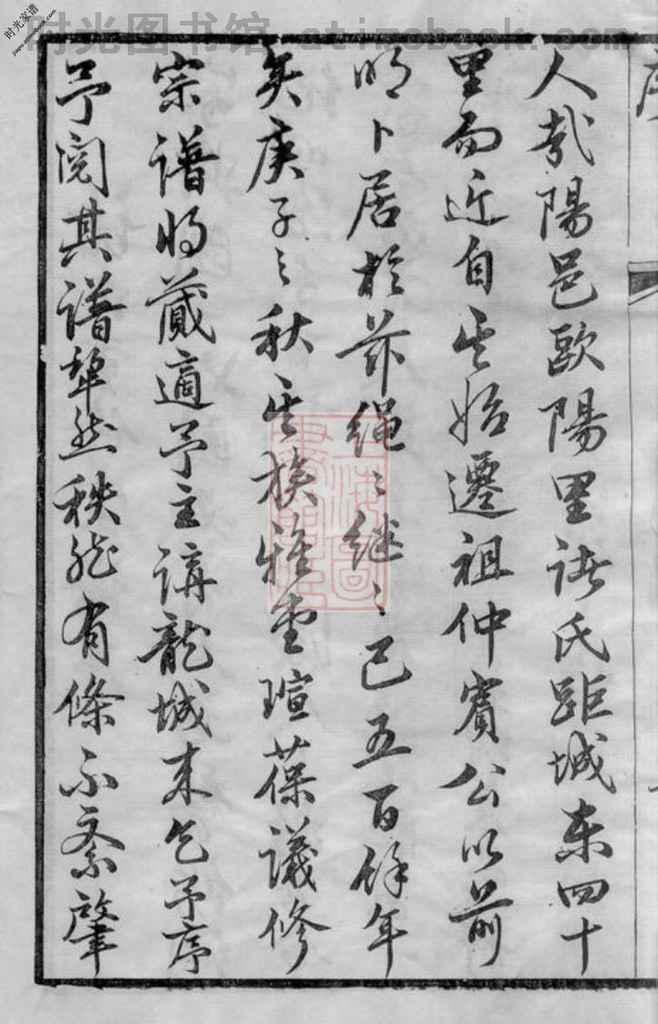 时光图书馆 atimebook.com
时光家谱
序
人哉陽邑歐陽里諸氏距城東四十
里而近自其始遷祖仲賓公以前
明卜居於茲繩〻継〻已五百餘年
矣庚子〻秋其族雅堂瑄葆議修
宗譜將蕆適予主講龍城来乞予序
予閱其譜犂然秩然有條不紊肇